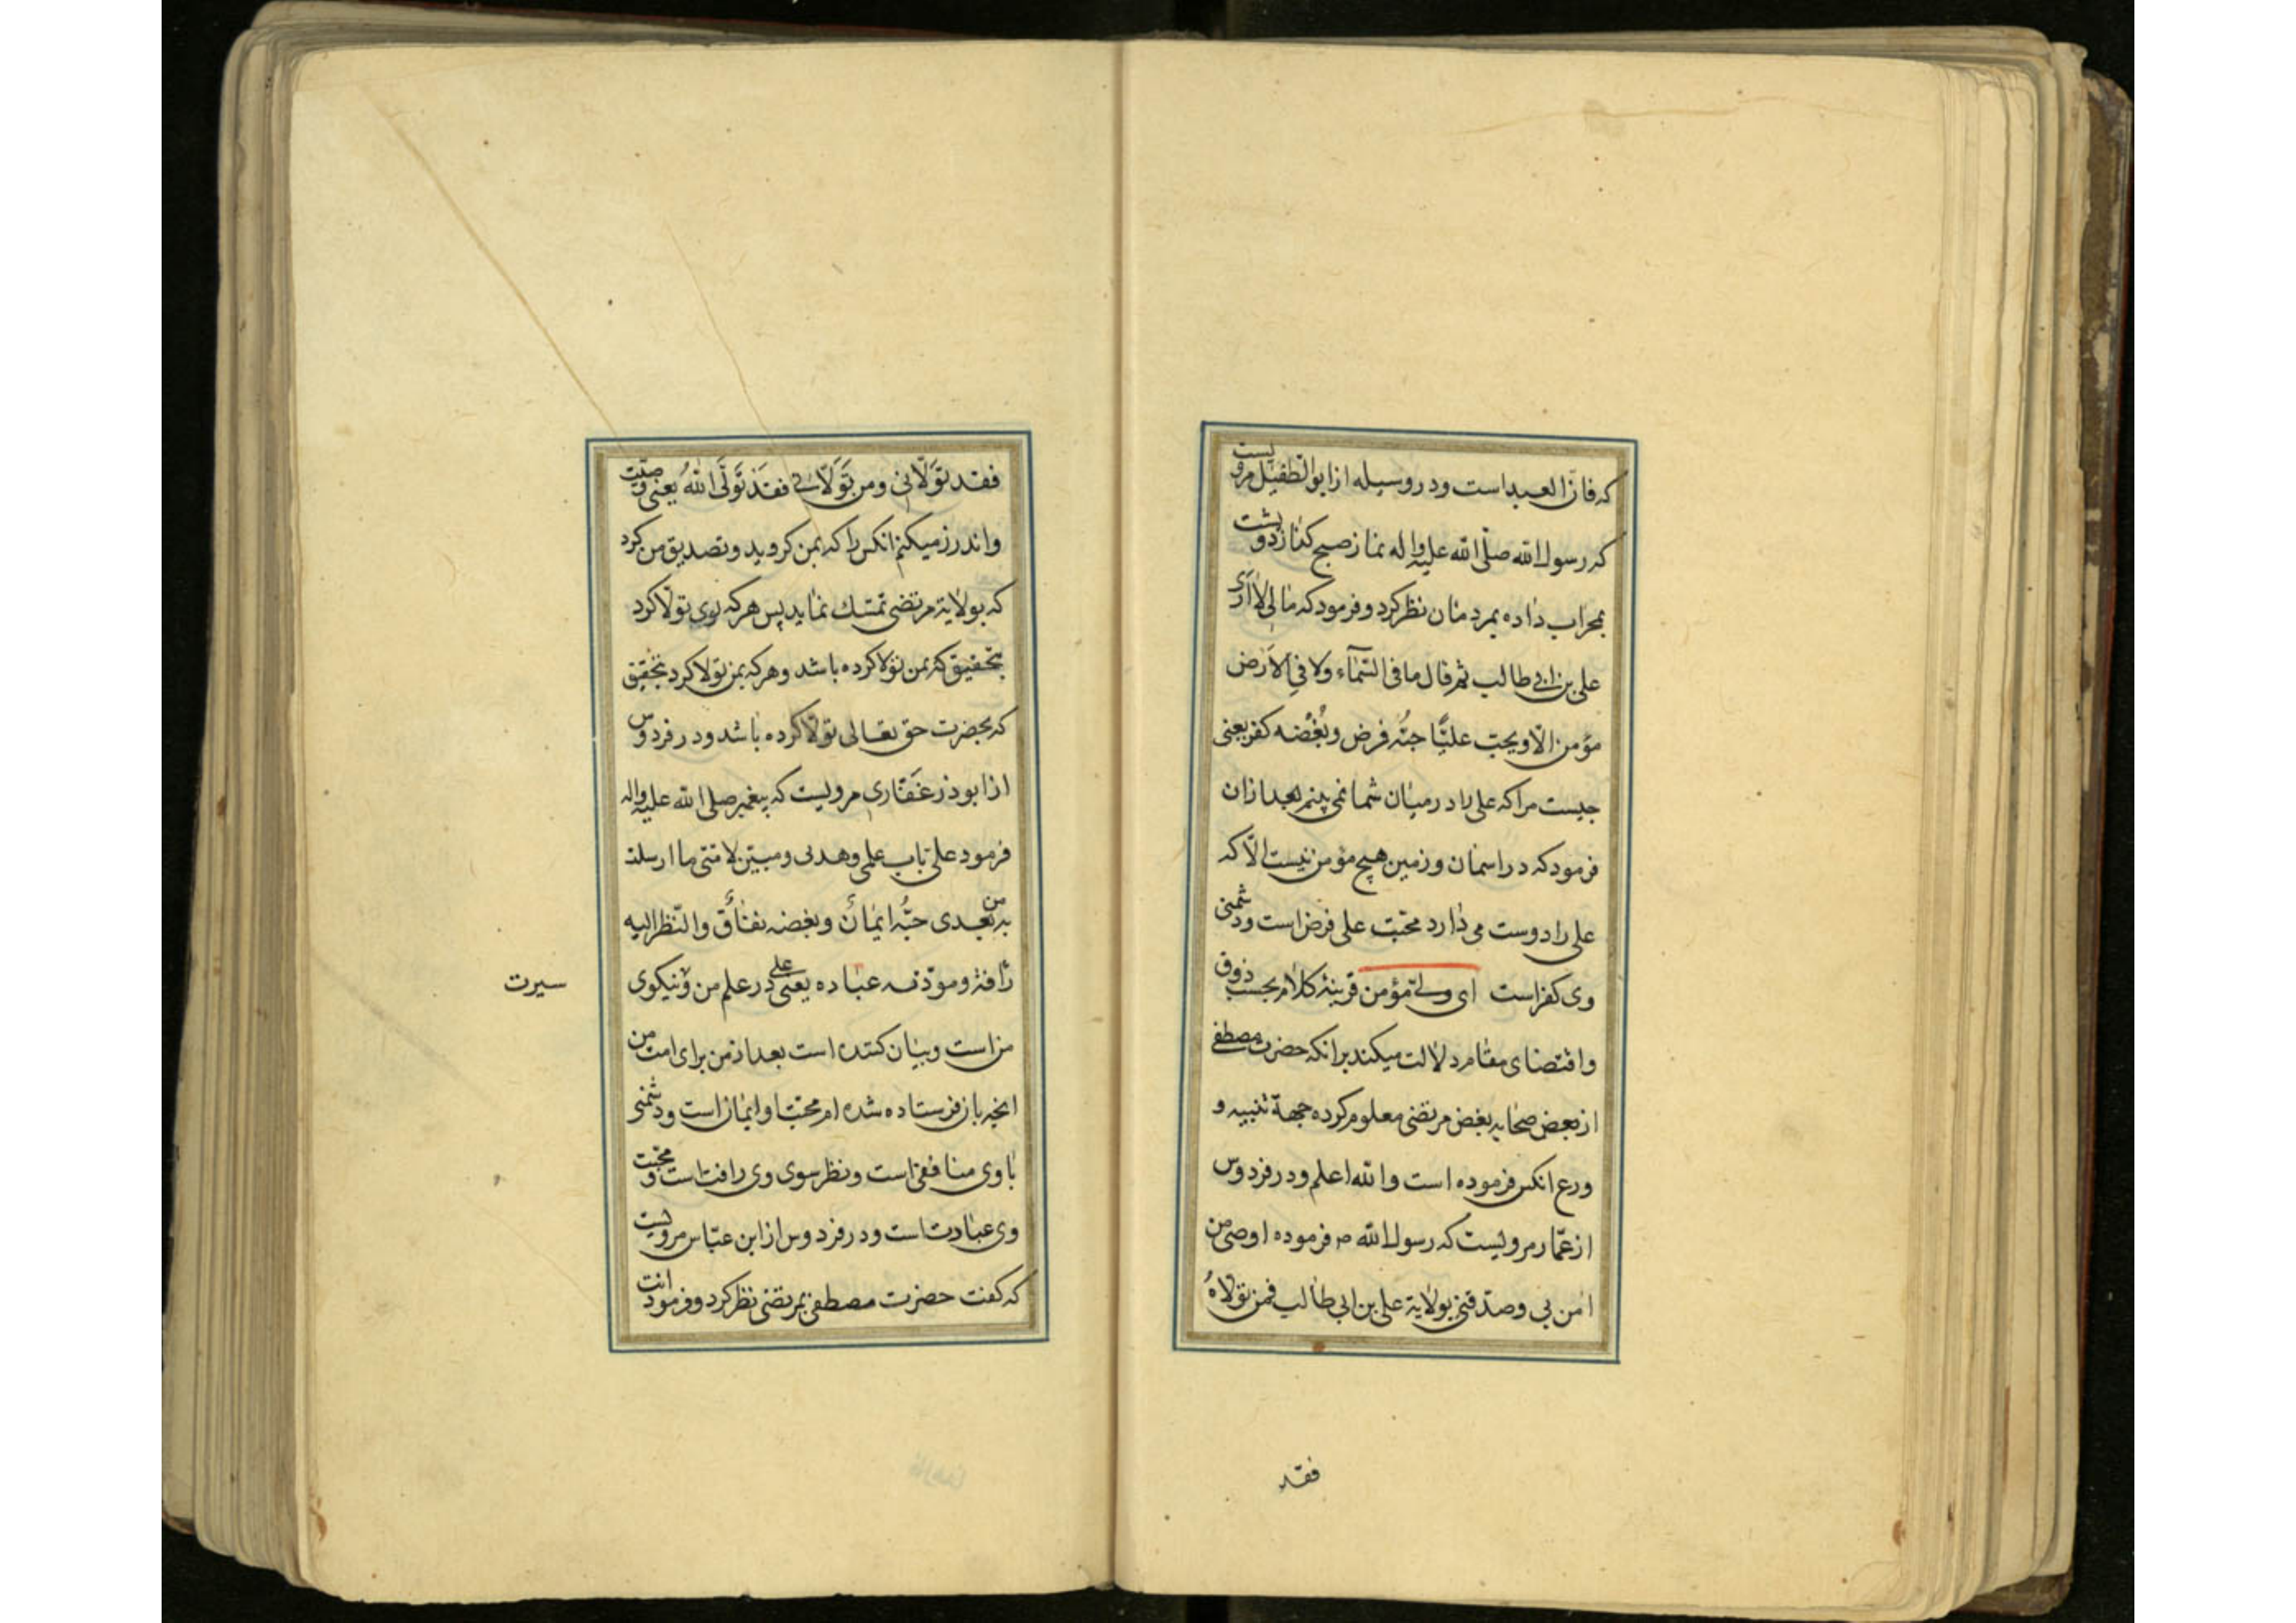 که فاز العبد است ودر وسیله از ابو الطفیل مرویست
که رسول الله صلّی الله علیه واله نماز صبح کذارد وپشت
بمحراب داده بمردمان نظر کرد و فرمود که مالی لا اَرَی
علی بن ابی طالب ثم قال ما فی السّمآء ولا فی الاَرض
مؤمن الّا ویحبّ علیًّا حبُّه فرض وبُغضُه کفر یعنی
چیست مرا که علی را در میان شما نمی بینم بعد از ان
فرمود که در اسمان و زمین هیچ مؤمن نیست الّا که
علی را دوست می دارد محبّت علی فرض است ودشمنی
وی کفر است ای ولیّ مؤمن قرینهٔ کلام بحسب ذوق
واقتضای مقام دلالت میکند بر انکه حضرت مصطفی
از بعض صحابه بغض مرتضی معلوم کرده جهة تنبیه و
ورع انکس فرموده است والله اعلم ودر فردوس
از عمّار مرویست که رسول الله ص فرموده اوصی من
امن بی وصدّقنی بولایة علی بن ابی طالب فمن تولاهُ
فقد
فقد تَوَلّانی ومن تَوَلّانی فقَد تَولَّی اللهُ یعنی وصیّت
واندرز میکنم انکس را که بمن کروید وتصدیق من کرد
که بولایة مرتضی تمسّك نماید پس هر که بوی تولّا کرد
بتحقیق که بمن تولّا کرده باشد وهر که بمن تولّا کرد بتحقیق
که بحضرت حق تعالی تولّا کرده باشد ودر فردوس
از ابوذر غفّاری مرویست که پیغمبر صلی الله علیه واله
فرمود علی باب علمی وهدیی ومبیّن لامّتی ما ارسلت
به من بعدی حبُّه ایمانٌ وبغضه نفاقٌ والنّظر الیه
رأفة ومودّته عباده یعنی علی در علم من ونیکوی
سیرت
من است وبیان کننده است بعد از من برای امت من
انچه بان فرستاده شده ام محبّت او ایمان است ودشمنی
با وی منافقی است ونظر سوی وی رافت است ومحبّت
وی عبادت است ودر فردوس از ابن عبّاس مرویست
که کفت حضرت مصطفی بمرتضی نظر کرد وفرمود انت